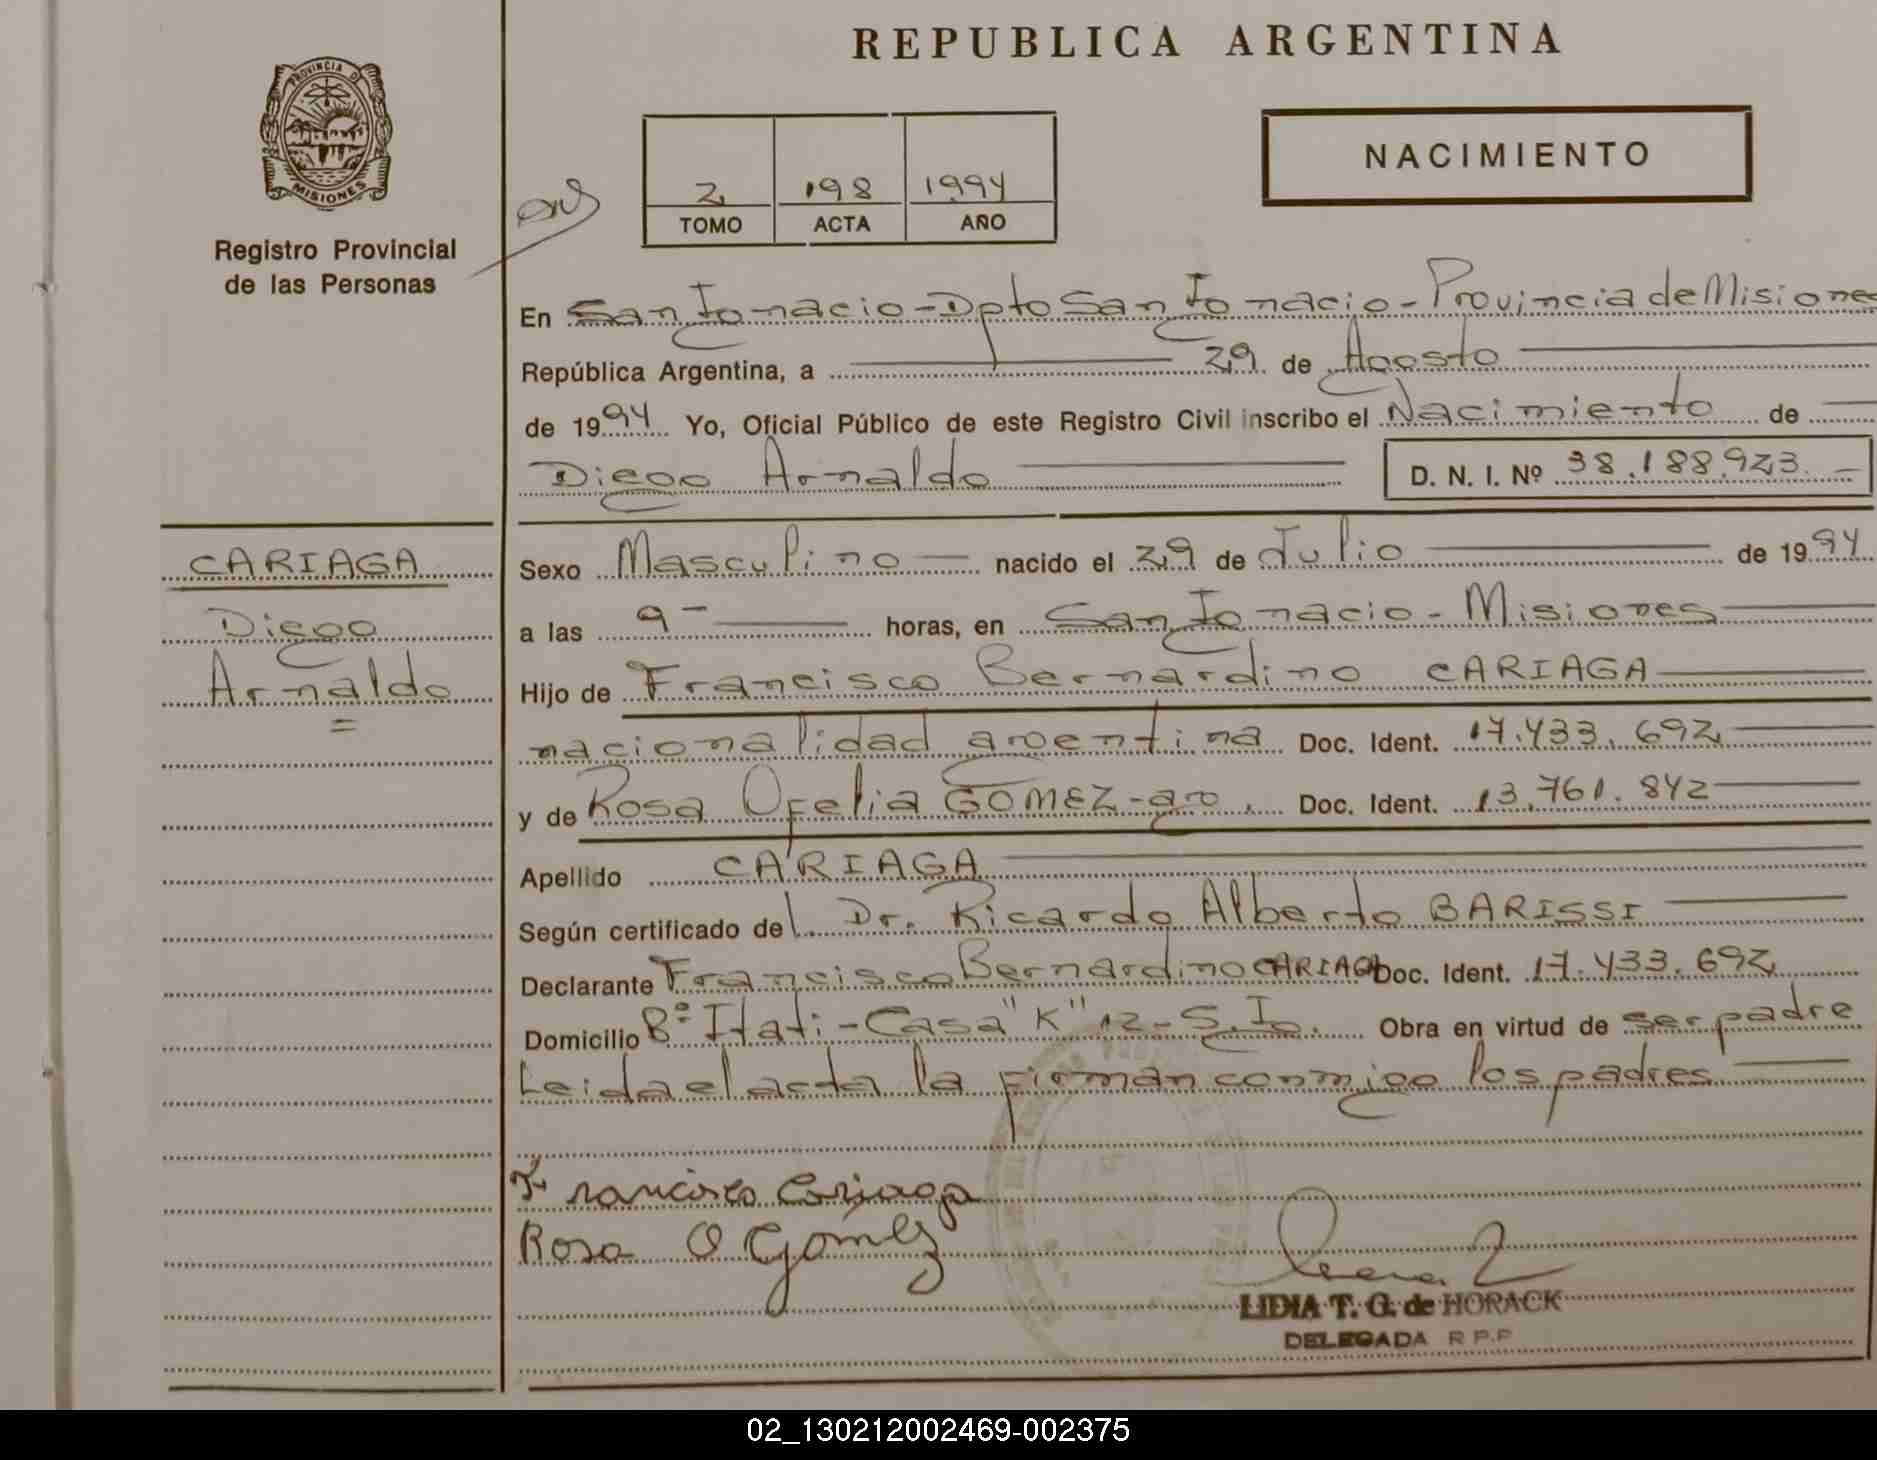 REPUBLICA ARGENTINA
PROVINCIA D
MISIONES
Registro Provincial
de las Personas
2 198 1994
TOMO ACTA AÑO
NACIMIENTO
En San Ignacio - Dpto San Ignacio - Provincia de Misiones
República Argentina, a 29 de Agosto
de 1994 Yo, Oficial Público de este Registro Civil inscribo el Nacimiento de
Diego Arnaldo D. N. I. Nº 38.188.923.
CARIAGA
Diego
Arnaldo
Sexo Masculino nacido el 29 de Julio de 1994
a las 9 horas, en San Ignacio - Misiones
Hijo de Francisco Bernardino CARIAGA
nacionalidad argentina Doc. Ident. 17.433.692
y de Rosa Ofelia GOMEZ - ag. Doc. Ident. 13.761.842
Apellido CARIAGA
Según certificado del Dr. Ricardo Alberto BARISSI
Declarante Francisco Bernardino CARIAGA Doc. Ident. 17.433.692
Domicilio Bº Itati - Casa "K" 12 - S. Ig. Obra en virtud de ser padre
Leida el acta la firman conmigo los padres
Francisco Cariaga
Rosa O Gómez
LIDIA T. G. de HORACK
DELEGADA R P.P
02_130212002469-002375